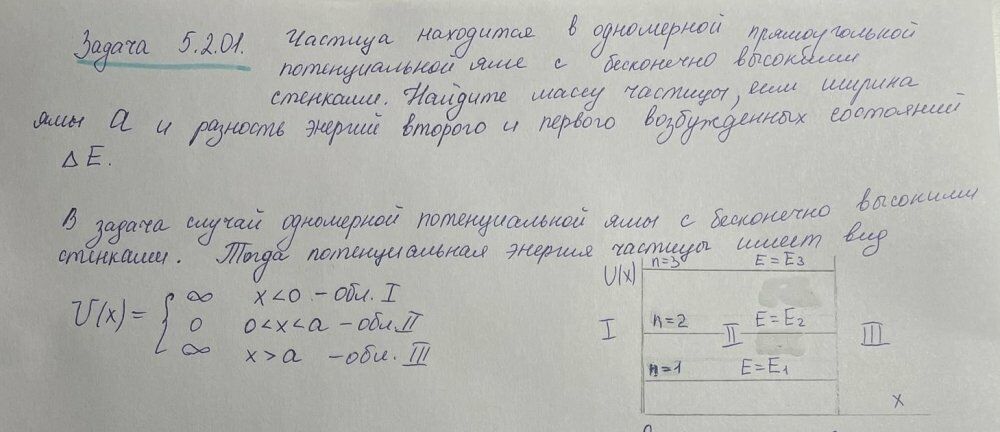 Задача 5.2.01. Частица находится в одномерной прямоугольной
потенциальной яме с бесконечно высокими
стенками. Найдите массу частицы, если ширина
ямы a и разность энергий второго и первого возбужденных состояний
ΔE.
В задача случай одномерной потенциальной ямы с бесконечно высокими
стенками. Тогда потенциальная энергия частицы имеет вид
U(x) = { ∞ x<0 - обл. I
0 0<x<a - обл. II
∞ x>a - обл. III
U(x) n=3 E=E3
I n=2 II E=E2 III
n=1 E=E1
x